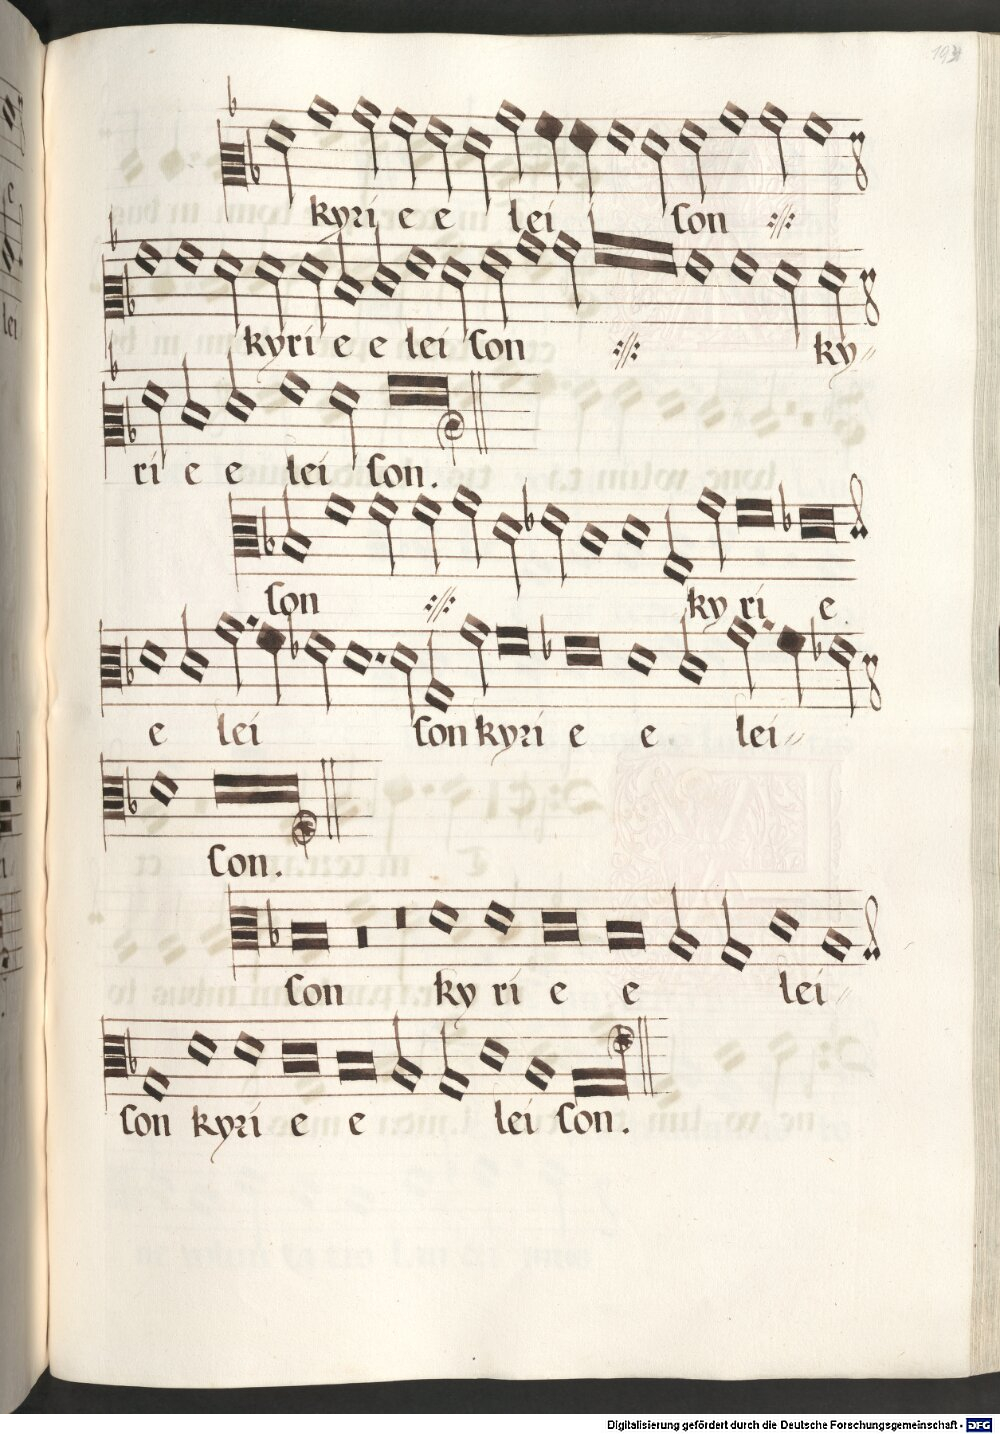 kyri e e lei son ://:
kyri e e lei son ://: ky//
ri e e lei son.
son ://: ky ri e
e lei son kyri e e lei//
son.
son ky ri e e lei//
son kyri e e lei son.
lei
Digitalisierung gefördert durch die Deutsche Forschungsgemeinschaft - DFG